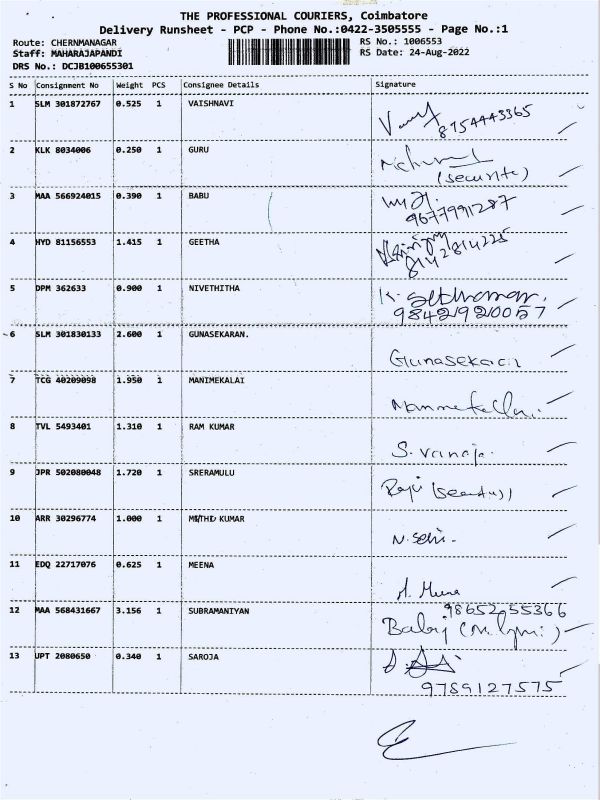 THE PROFESSIONAL COURIERS, Coimbatore
Delivery Runsheet - PCP - Phone No.:0422-3505555 - Page No.:1
Route: CHERNMANAGAR
Staff: MAHARAJAPANDI
DRS No.: DCJB100655301
RS No.: 1006553
RS Date: 24-Aug-2022
S No Consignment No Weight PCS Consignee Details Signature
1 SLM 301872767 0.525 1 VAISHNAVI
8754443365
2 KLK 8034006 0.250 1 GURU
(security)
3 MAA 566924015 0.390 1 BABU
9677991287
4 HYD 81156553 1.415 1 GEETHA
8142814225
5 DPM 362633 0.900 1 NIVETHITHA
9842920057
6 SLM 301830133 2.600 1 GUNASEKARAN.
Gunasekaran
7 TCG 40209098 1.950 1 MANIMEKALAI
8 TVL 5493401 1.310 1 RAM KUMAR
S. vanaja.
9 JPR 502080048 1.720 1 SRERAMULU
10 ARR 30296774 1.000 1 KUMAR
11 EDQ 22717076 0.625 1 MEENA
12 MAA 568431667 3.156 1 SUBRAMANIYAN
9865255366
Babij
13 UPT 2080650 0.340 1 SAROJA
9789127575